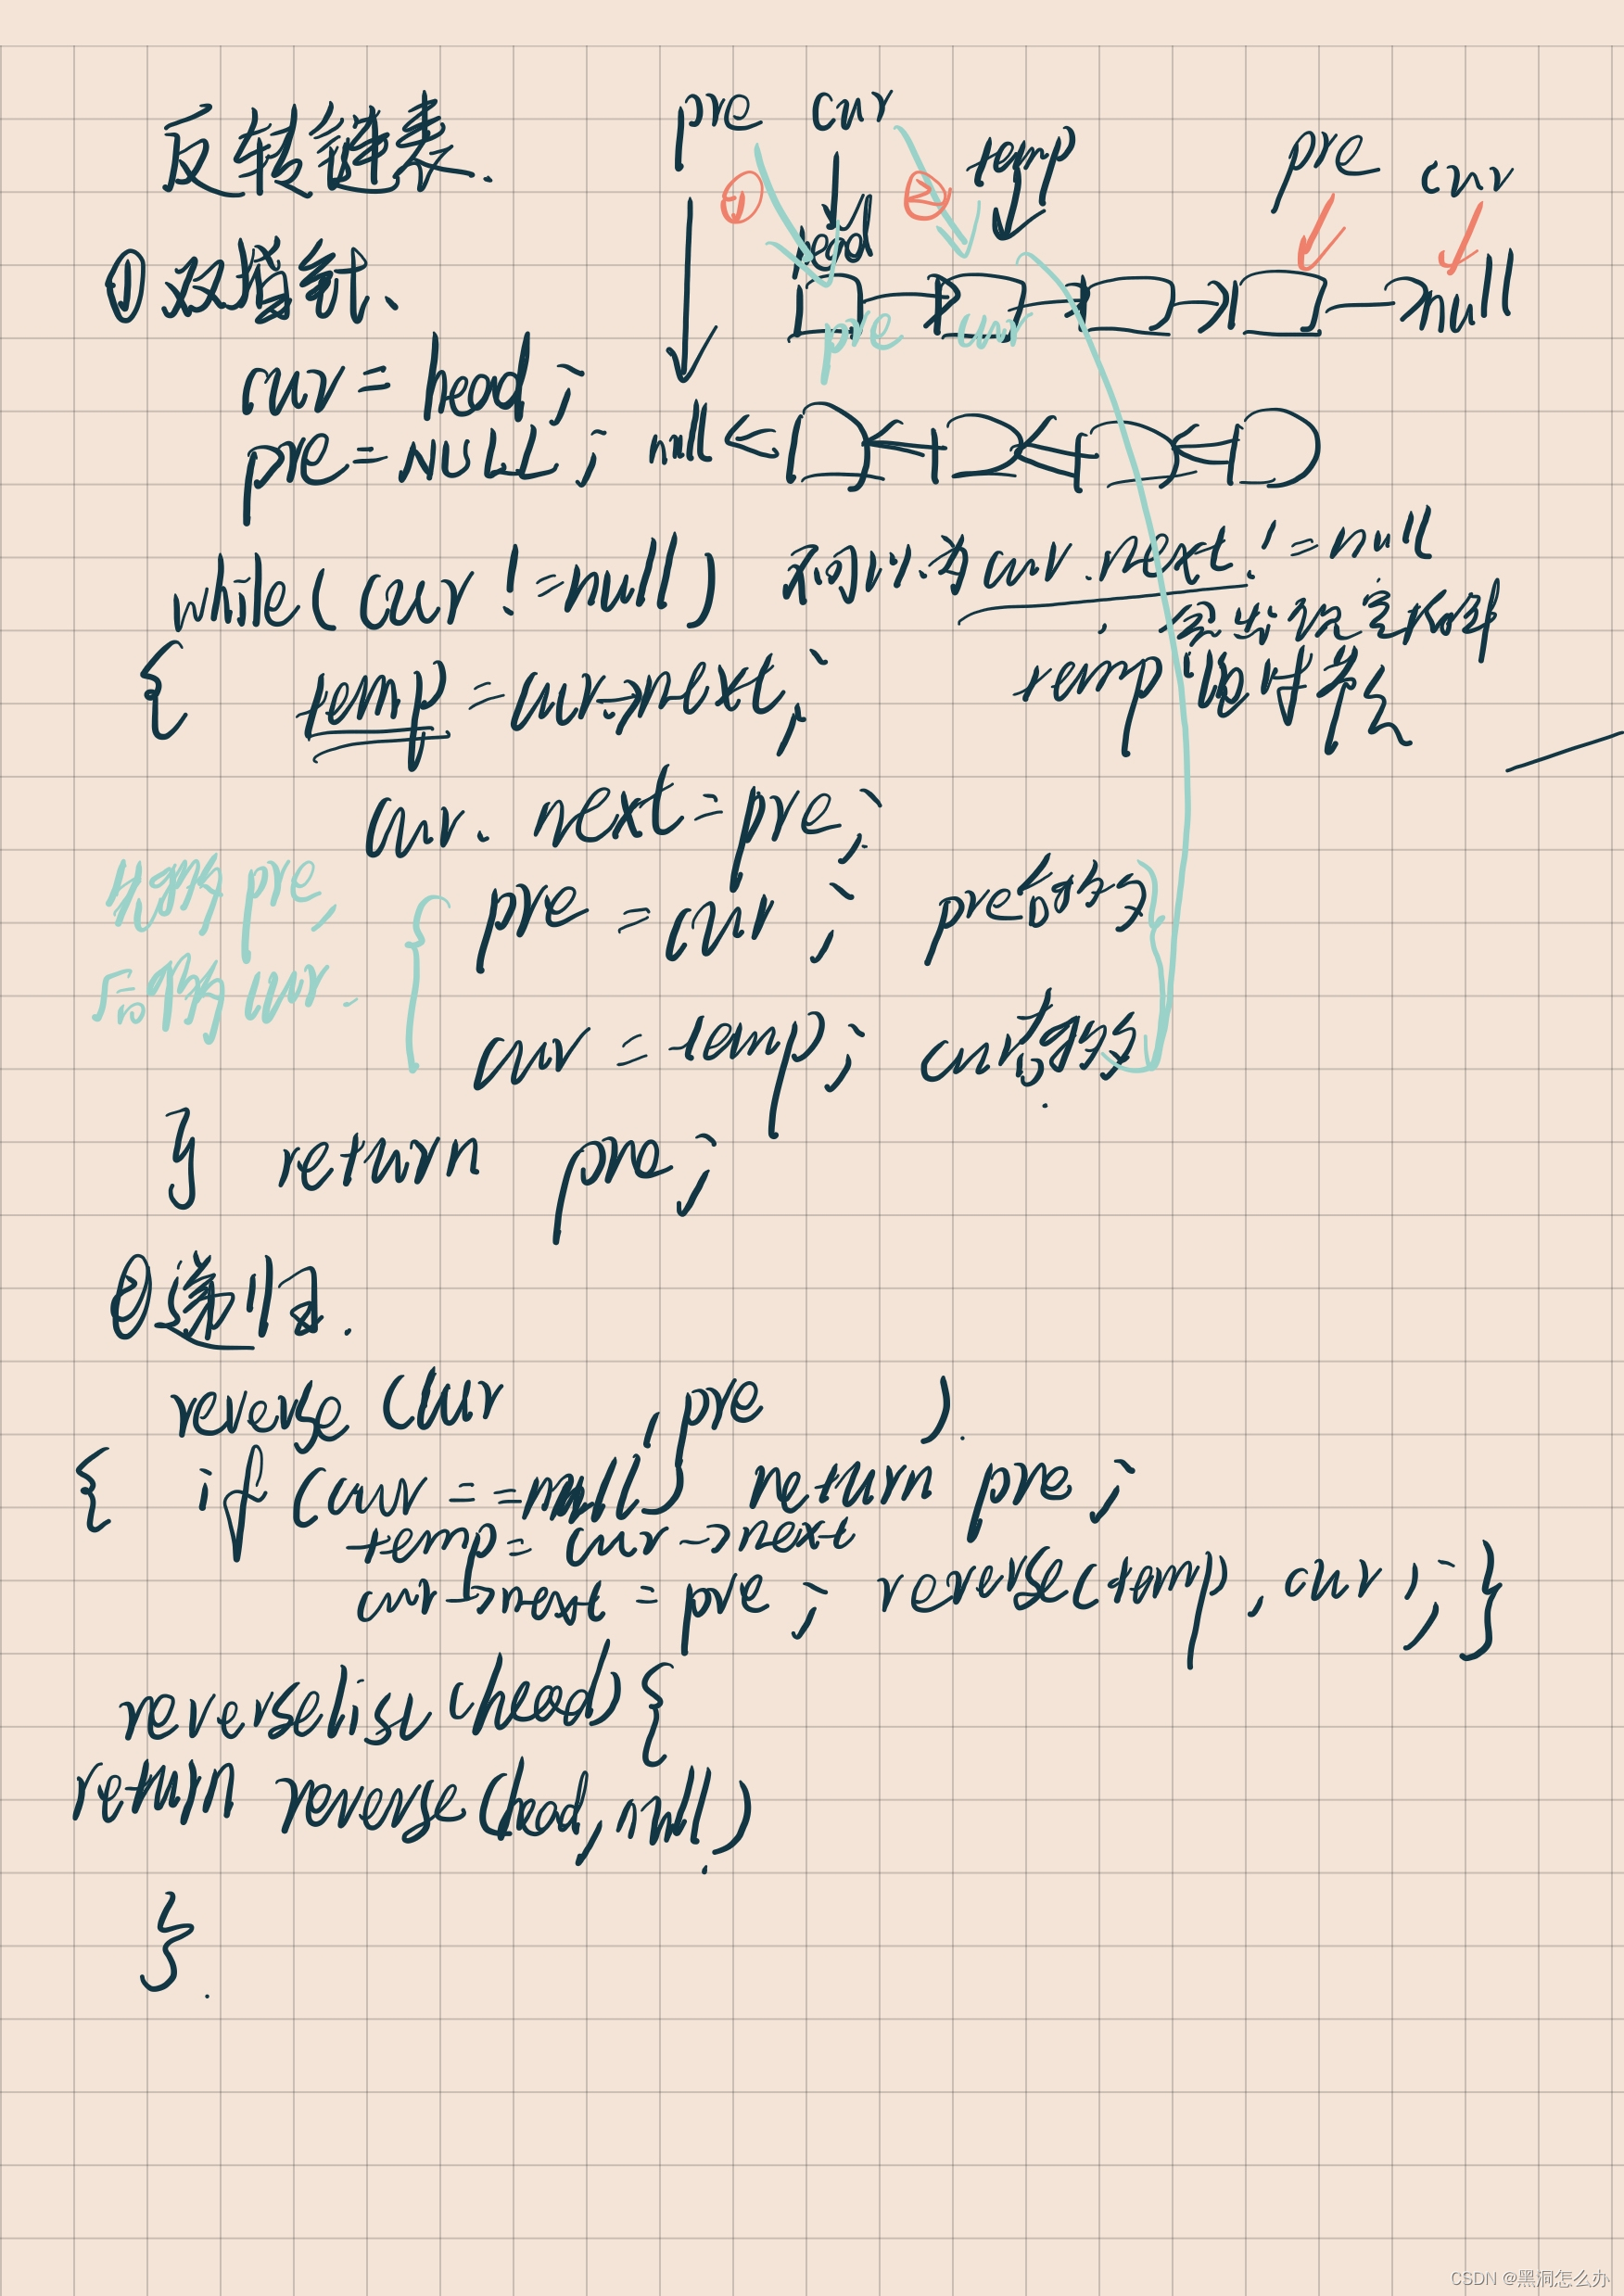 反转链表.
pre cur temp pre cur
① ②
head
①双指针、
null
pre cur
cur = head;
pre = NULL; null
while(cur != null) 不可以为cur.next != null
{ temp = cur->next; temp 临时节点
cur. next = pre;
先挪 pre,
pre = cur; pre向后挪
后挪 cur.
cur = temp; cur向后挪
} return pre;
②递归.
reverse (cur , pre ).
{ if (cur == null) return pre;
temp = cur->next
cur->next = pre; reverse(temp, cur); }
reverselist (head) {
return reverse(head, null)
}.
CSDN @黑洞怎么办